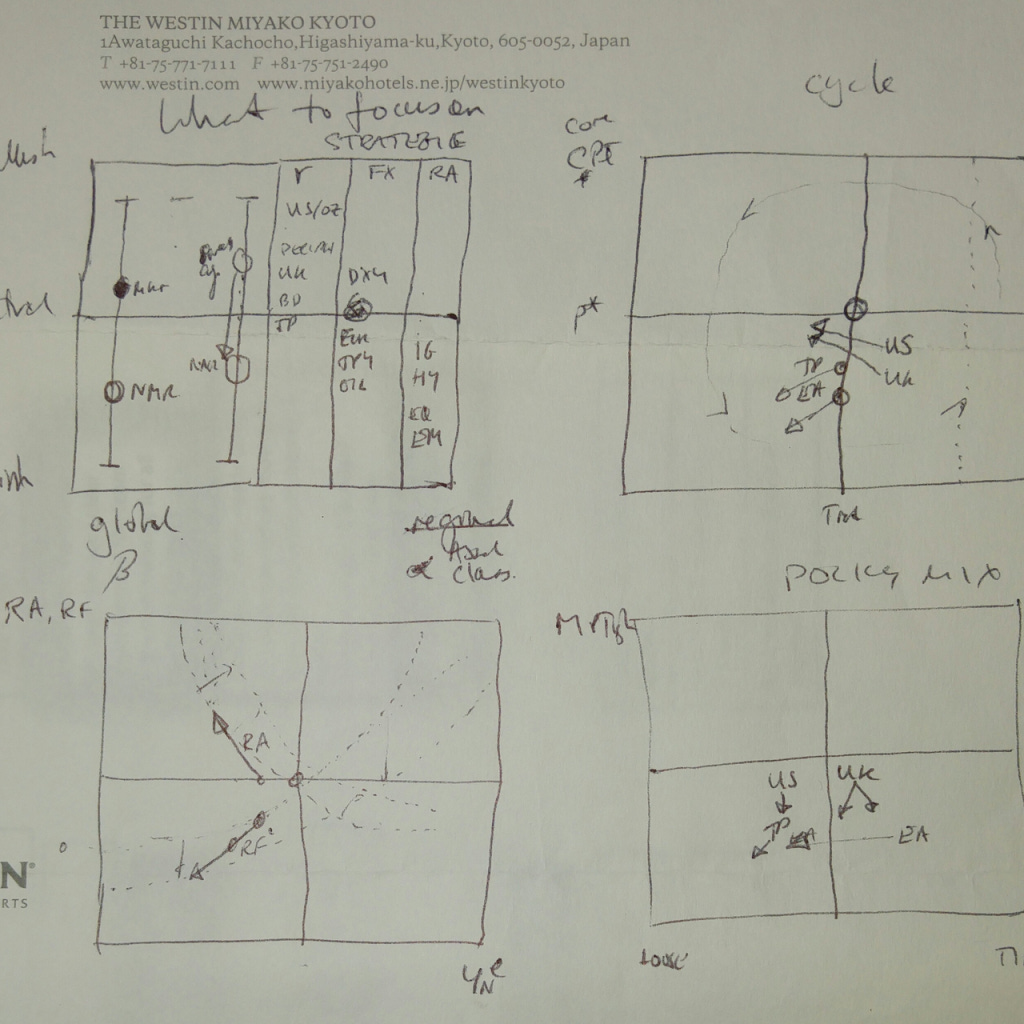 THE WESTIN MIYAKO KYOTO
1Awataguchi Kachocho,Higashiyama-ku,Kyoto, 605-0052, Japan
T +81-75-771-7111 F +81-75-751-2490
www.westin.com www.miyakohotels.ne.jp/westinkyoto
What to focus on
STRATEGIE
cycle
Core
CPI
*
r FX RA
US/OZ
UK
BD
JP
DXY
EUR
JPY
IG
HY
EQ
EM
NMR
P*
US
UK
JP
EA
Trd
global
β
regional
α Asset
Class.
RA, RF
RA
RF
YNe
POLICY MIX
US UK
JP
EA EA
LOOSE
N®
RTS